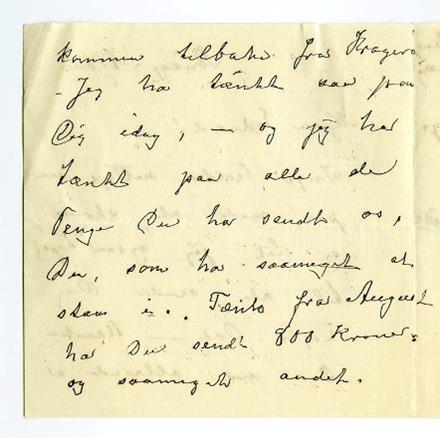 kommer tilbake fra Kragerø
- Jeg har tænkt saa paa
Dig idag, - og jeg har
tænkt paa alle de
Penge Du har sendt os,
Du, som har saameget at
staa i. Tænk fra August
har Du sendt 800 Kroner
og saameget andet.